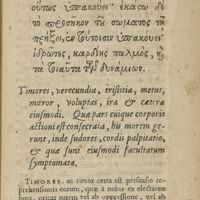 οὕτως ὑπακούει· ἑκάστῳ δὲ
τὸ πρόσηκον τῷ σώματος τῇ
πρήξει, ἐν τουτοισιν ὑπακούει
ἱδρῶτες, καρδίης παλμὸς,
τὰ τοιαῦτα τῶν δυνάμιων.
Timores, verecundia, tristitia, metus,
mæror, voluptas, ira & cætera
eiusmodi. Quæ pars cuique corporis
actioni est consecrata, his morem ge-
runt, inde sudores, cordis palpitatio,
& quæ sunt eiusmodi facultatum
symptomata.
TIMORES. ac timor certa est persuasio re-
prehensionis eorum, quæ à nobis ex electione
fiunt, oritur autem vel ab oppressione, vel ab